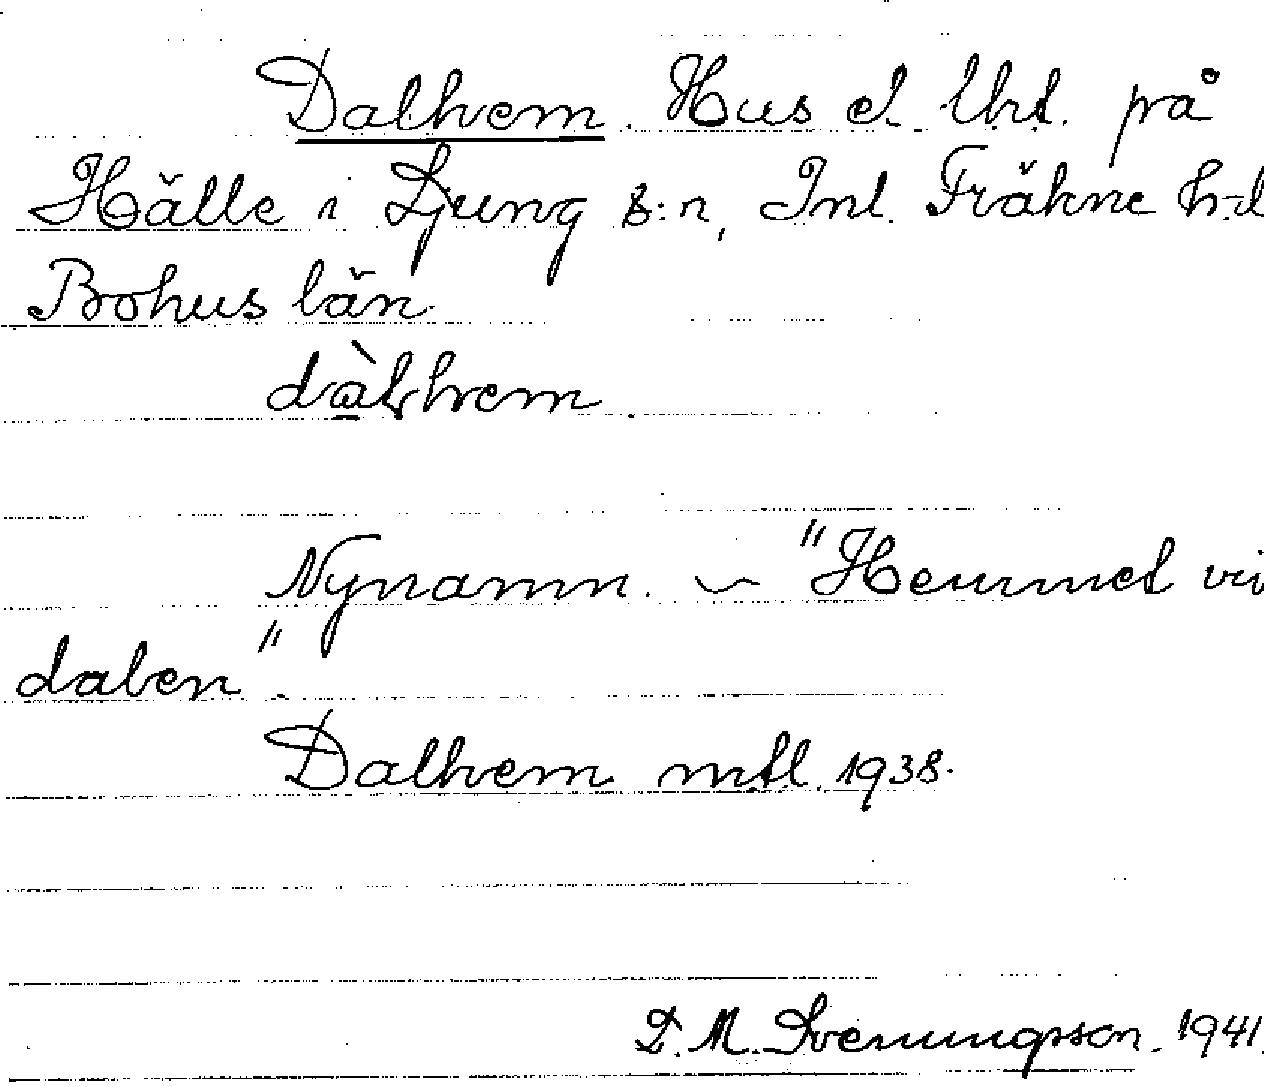 Dalhem. Hus el. lht. på
Hälle i Ljung s:n, Inl. Fräkne h-d
Bohus län
dàlhem.
Nynamn. – "Hemmet vid
dalen".
Dalhem mtl. 1938.
D. M. Svenungsson. 1941.